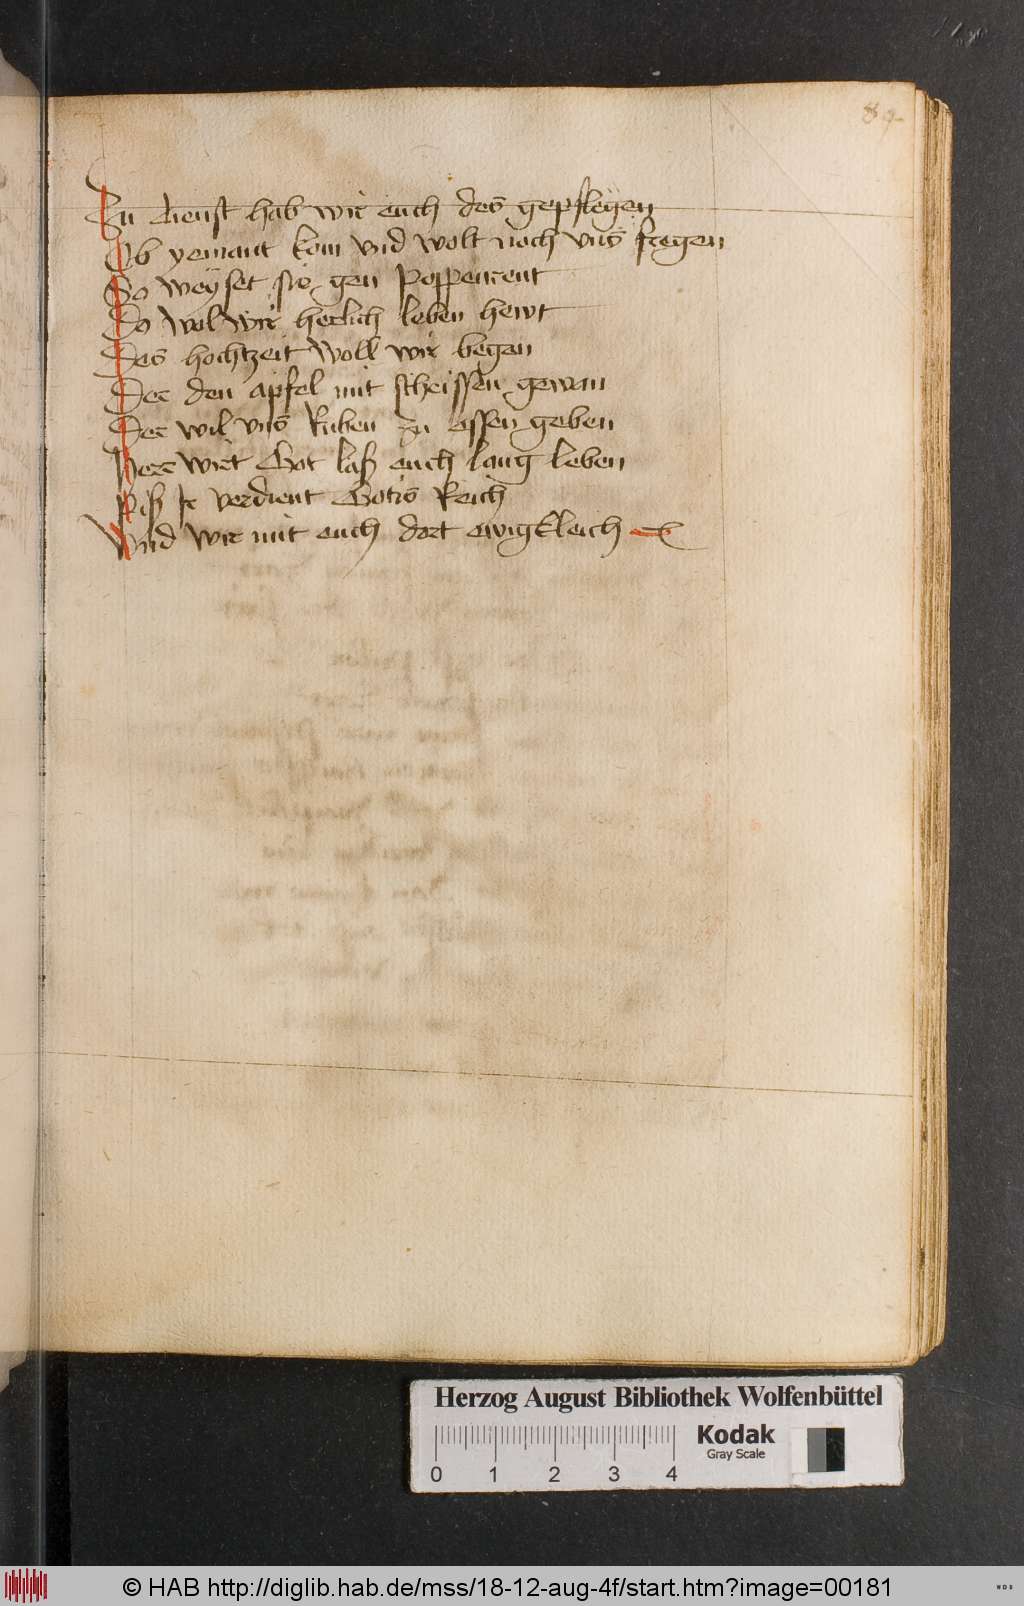 89
Zu dienst hab wir euch des gepflegen
Ob yemant kom vnd wolt noch vns fregen
So weyset sie gen Poppenrent
Do wol wir herlich leben hewt
Des hochtzeit woll wir began
Der den apfel mit scheissen gewan
Der wil vns Ruben zu essen geben
Herr wirt Got laß euch lang leben
Piß Ir verdient Gotis Reich
Vnd wir mit euch dort ewigkleich
Herzog August Bibliothek Wolfenbüttel
Kodak
Gray Scale
0 1 2 3 4
© HAB http://diglib.hab.de/mss/18-12-aug-4f/start.htm?image=00181